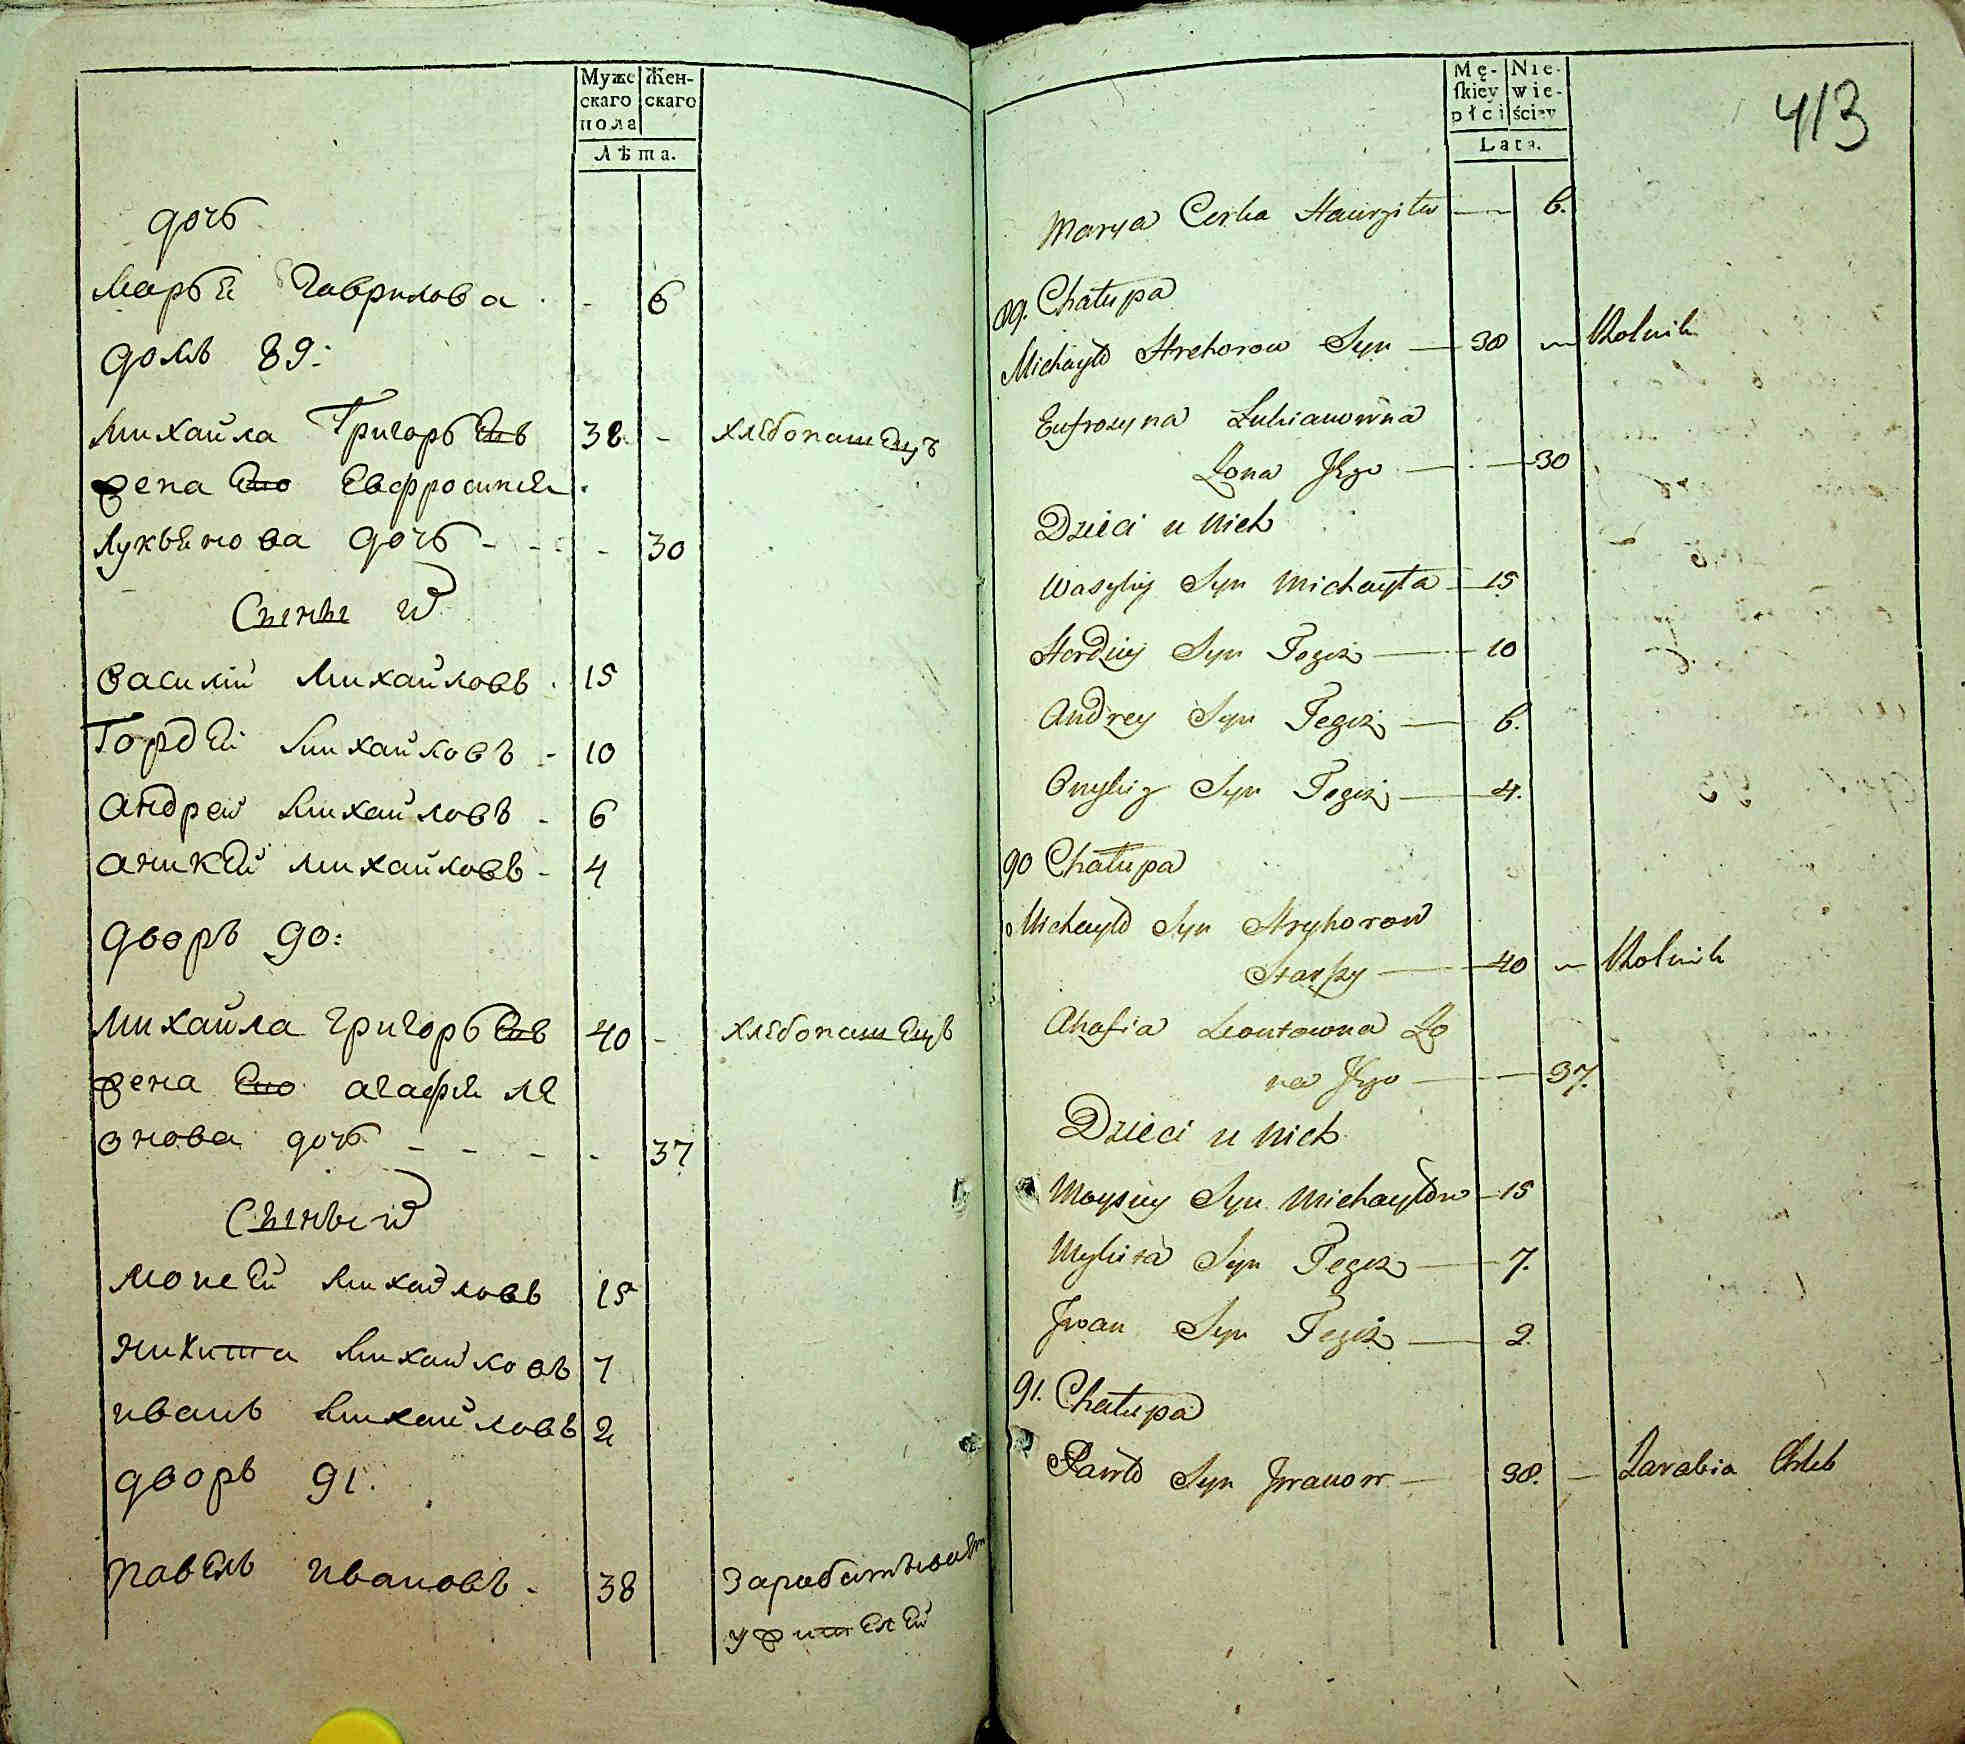 Муже
скаго
пола
Жен-
скаго
Лѣта.
дочь
Марья Гаврилова - 6
домъ 89:
Михайла Григорьевъ 38 - хлебопашецъ
жена ево Евфросинья
Лукьянова дочь - - - - 30
Сыны и҃
Василий Михайловъ 15
Гордей Михайловъ - 10
Андрей Михайловъ - 6
Аникей Михайловъ - 4
дворъ 90:
Михайла Григорьевъ 40 - хлебопашецъ
жена ево агафья ле
онова дочь - - - - 37
Сыны и҃
Мосей Михайловъ 15
Никита Михайловъ 7
иванъ Михайловъ 2
дворъ 91.
павелъ ивановъ - 38 Заработывает
у жителей
Mę-
ſkiey
płci
Nie-
wie-
ściey
Lata.
413
Marya Corka Hauryła — 6.
89. Chałupa
Michayło Hrehorow Syn — 38 — Rolnik
Eufrozyna Lukianowna
Zona Jego — 30
Dzieci u Nich
Wasyliy Syn Michayła — 15
Hordiey Syn Tegoż — 10
Andrey Syn Tegoż — 6.
Onykiy Syn Tegoż — 4.
90 Chałupa
Michayło Syn Hryhorow
Starszy — 40 — Rolnik
Ahafia Leontowna Zo
na Jego — 37.
Dzieci u Nich
Moysiey Syn Michayłow — 15
Mykita Syn Tegoż — 7.
Jwan Syn Tegoż — 2.
91. Chałupa
Pawło Syn Jwanow — 38. — Zarabia Chleb